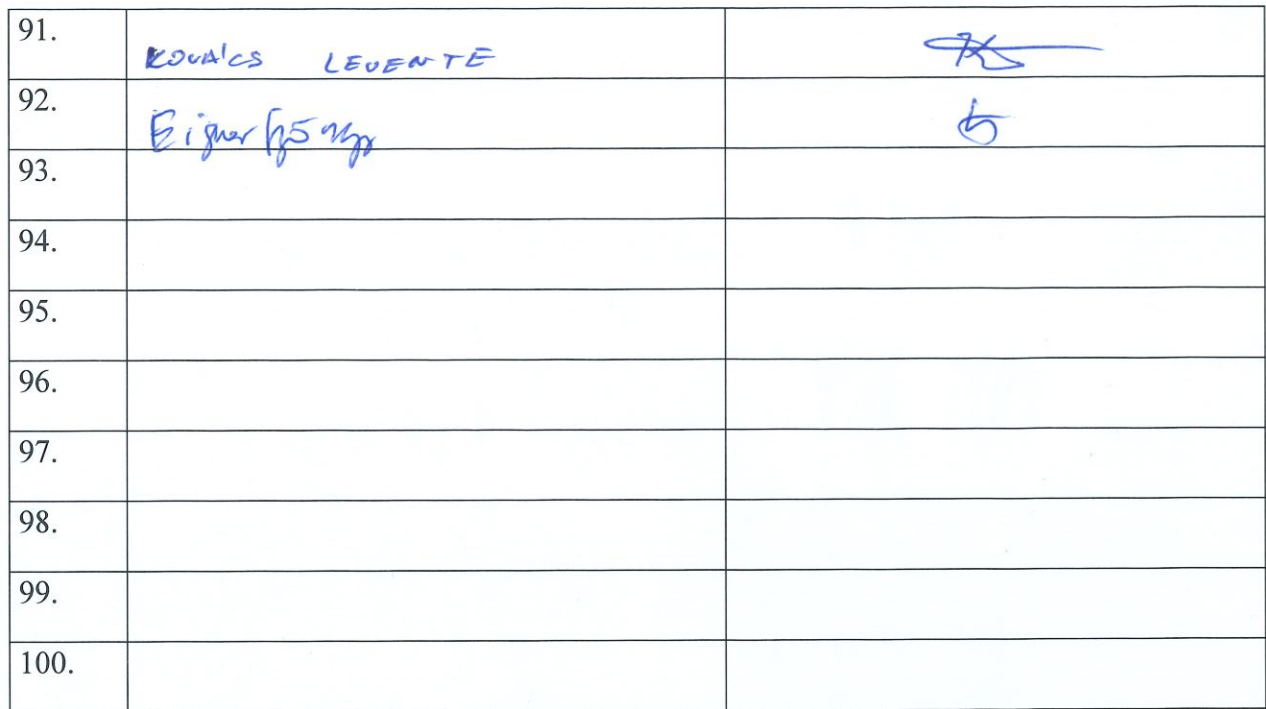 91. KOVÁCS LEVENTE
92. Eigner György
93.
94.
95.
96.
97.
98.
99.
100.